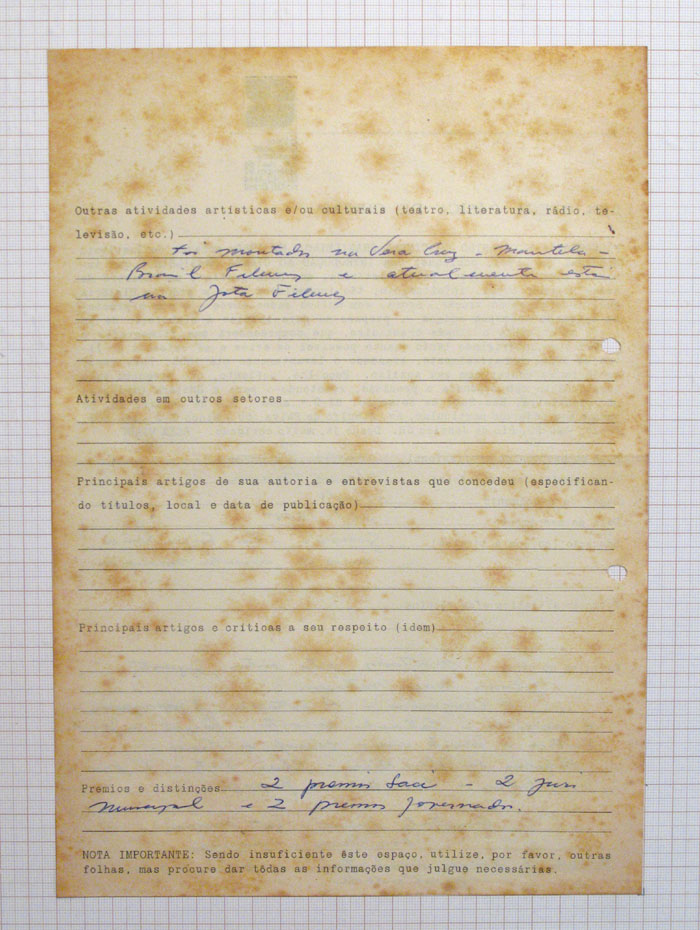 Outras atividades artísticas e/ou culturais (teatro, literatura, rádio, te-
levisão, etc.)
Foi montador na Vera Cruz - Maristela -
Brasil Filmes e atualmente está
na Jota Filmes
Atividades em outros setores
Principais artigos de sua autoria e entrevistas que concedeu (especifican-
do títulos, local e data de publicação)
Principais artigos e críticas a seu respeito (idem)
Premios e distinções 2 premios Saci - 2 juri
Municipal e 2 premios Governador.
NOTA IMPORTANTE: Sendo insuficiente êste espaço, utilize, por favor, outras
folhas, mas procure dar tôdas as informações que julgue necessárias.